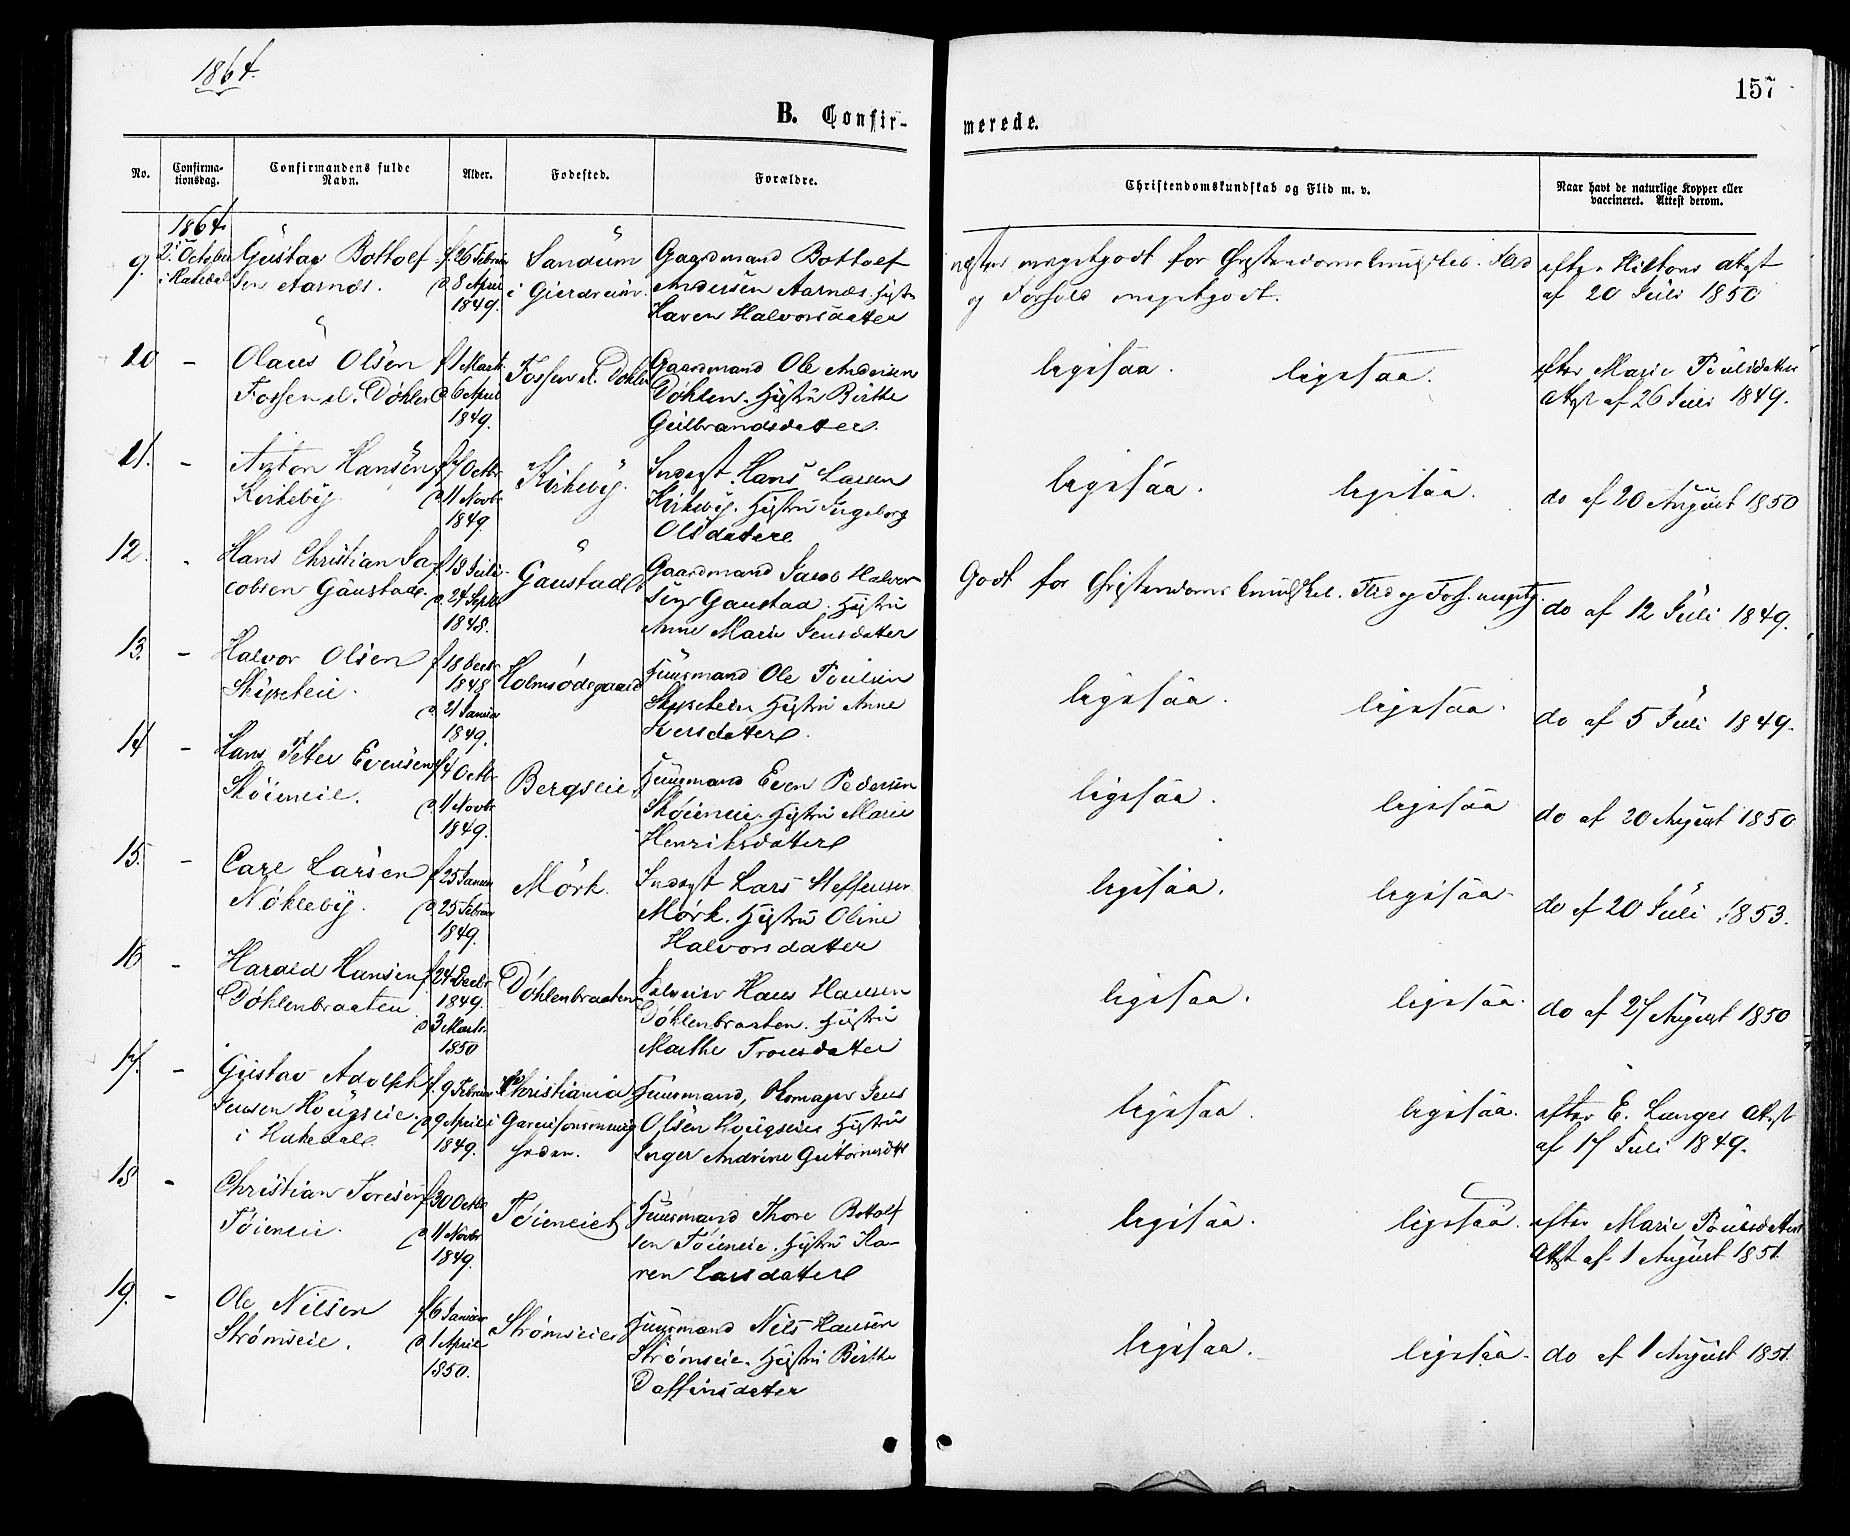 1864.
157
B. Confir-
merede.
No.
Confirma-
tionsdag.
Confirmandens fulde
Navn.
Alder.
Fødested.
Forældre.
Christendomskundskab og Flid m. v.
Naar havt de naturlige Kopper eller
vaccineret. Attest derom.
1864
9. 2. October Gustav Bottolf- f. 26 Februar Sandum Gaardmand Bottolf næsten megetgodt for Flid efter Hiltons Attest
i Hakedal sen Aarnæs. d 8 April i Gjerdrum. Andersen Aarnæs. Hustru og Forhold megetgodt. af 20 Juli 1850
1849. Karen Halvorsdatter
10 - Olaus Olsen f 1 Marts Fossen u. Døhlen Gaardmand Ole Andersen ligesaa. ligesaa. efter Marie Poulsdatters
Fossen u. Døhlen d 6 April Døhlen. Hustru Birthe Attest af 26 Juli 1849.
1849. Gulbrandsdatter.
11. - Anton Hansen f 7 Octbr Kirkeby. Inderst Hans Larsen ligesaa. ligesaa. do af 20 August 1850
Kirkeby. d 11 Novbr Kirkeby. Hustru Ingeborg
1849. Olsdatter.
12. - Hans Christian Ja- f 13 Juli Gaustad Gaardmand Jacob Halvor- Godt for Flid og Forh. megetg. do af 12 Juli 1849.
cobsen Gaustad. d. 24 Septbr sen Gaustad. Hustru
1848. Anne Marie Jensdatter
13. - Halvor Olsen f 18 Decbr Holmsødegaard Huusmand Ole Poulsen ligesaa. ligesaa. do af 5 Juli 1849.
1848 Hustru Anne
d. 21 Januar Iversdatter.
1849.
14 - Hans Peter Evensen f 4 Octbr Bergseie Huusmand Even Pedersen ligesaa. ligesaa do af 20 August 1850
Skøieneie. d. 11 Novbr Skøieneie. Hustru Marie
1849. Henriksdatter
15. - Carl Larsen f 25 Januar Mørk. Inderst Lars Steffensen ligesaa. ligesaa do af 20 Juli 1853.
Nøkleby. d 25 Februar Mørk. Hustru Oline
1849. Halvorsdatter
16 - Harald Hansen f 24 Decbr Døhlenbraaten Selveier Hans Hansen ligesaa. ligesaa. do af 21 August 1850
Døhlenbraaten 1849. Døhlenbraaten. Hustru
d 3 Marts Marthe Tronsdatter
1850
17. - Gustav Adolph f. 9 Februar Christiania Huusmand, Jens ligesaa. ligesaa. efter E. Langes Attest
Jensen Hougseie d 9 April i Garnisonsmenig- Olsen Hougseie Hustru af 17 Juli 1849.
i Hakedal. 1849. heden. Inger Andrine
18 - Christian Toresen f 30 Octbr Tøieneiet Huusmand Thore Botolf ligesaa. ligesaa. efter Marie Poulsdatters
Tøieneie. d 11 Novbr sen Tøieneie. Hustru Ka- Attest af 1 August 1851.
1849. ren Larsdatter
19. - Ole Nilsen f 6 Januar Strømseie Huusmand Nils Hansen ligesaa. ligesaa. do af 1 August 1851.
Strømseie. d 1 April Strømseie. Hustru Birthe
1850. Daffinsdatter